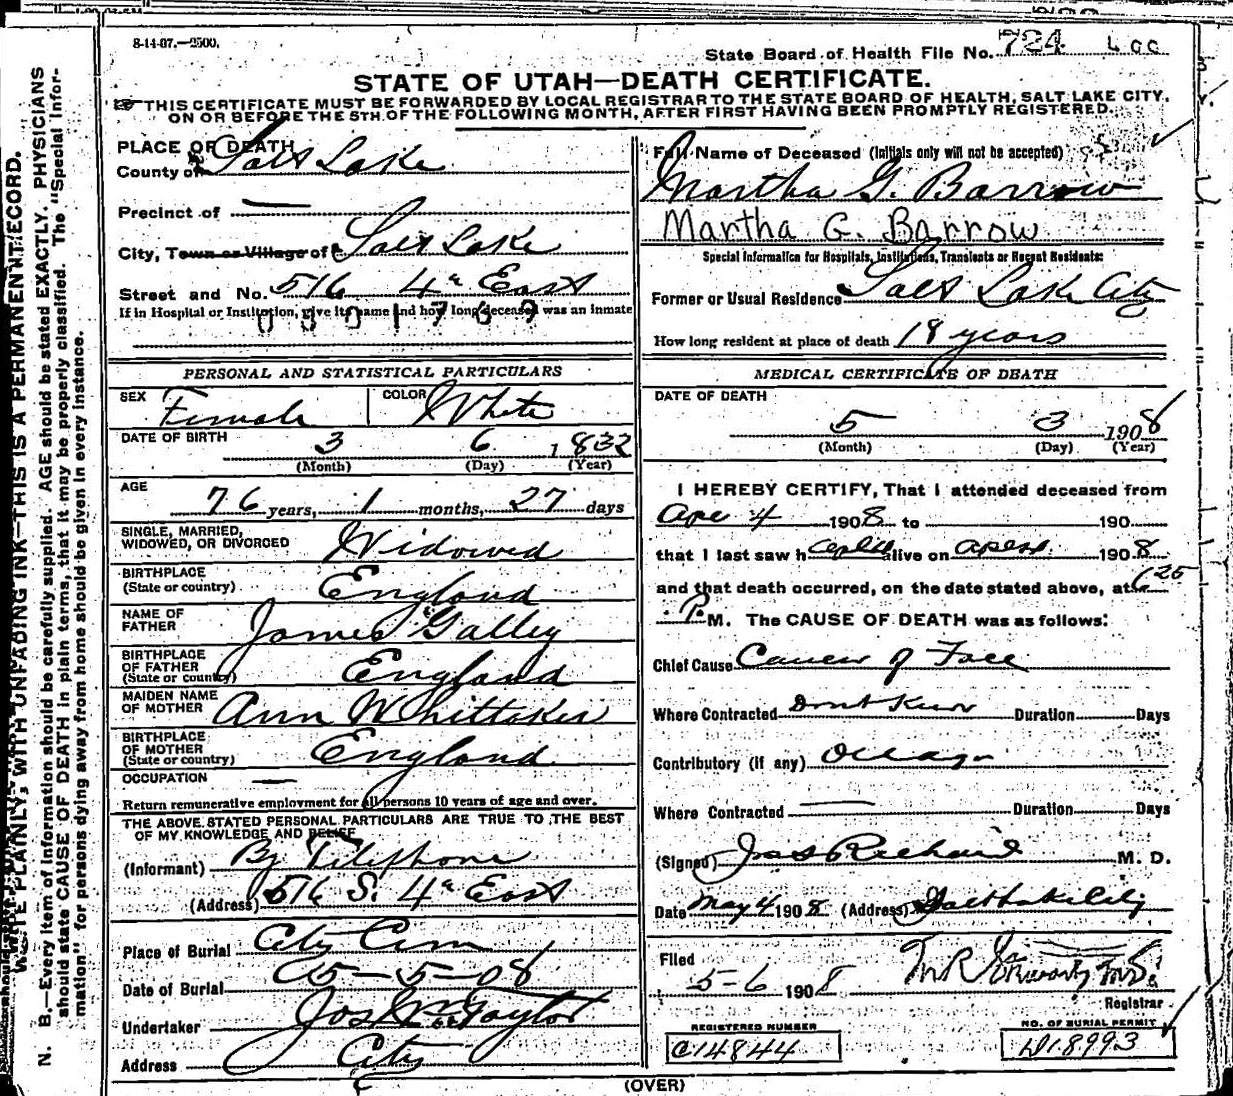 8-14-07.—2500.
State Board of Health File No. 724
STATE OF UTAH—DEATH CERTIFICATE.
THIS CERTIFICATE MUST BE FORWARDED BY LOCAL REGISTRAR TO THE STATE BOARD OF HEALTH, SALT LAKE CITY,
ON OR BEFORE THE 5TH OF THE FOLLOWING MONTH, AFTER FIRST HAVING BEEN PROMPTLY REGISTERED.
PLACE OF DEATH
County of Salt Lake
Precinct of —
City, Town or Village of Salt Lake
Street and No. 516 4" East
If in Hospital or Institution, give its name and how long deceased was an inmate
0301767
Full Name of Deceased (Initials only will not be accepted)
Martha G. Barrow
Martha G. Barrow
Special Information for Hospitals, Institutions, Transients or Recent Residents:
Former or Usual Residence Salt Lake City
How long resident at place of death 18 years
PERSONAL AND STATISTICAL PARTICULARS
SEX Female COLOR White
DATE OF BIRTH 3 6 1832
(Month) (Day) (Year)
AGE 76 years, 1 months, 27 days
SINGLE, MARRIED,
WIDOWED, OR DIVORCED Widowed
BIRTHPLACE
(State or country) England
NAME OF
FATHER James Galley
BIRTHPLACE
OF FATHER
(State or country) England
MAIDEN NAME
OF MOTHER Ann Whittaker
BIRTHPLACE
OF MOTHER
(State or country) England
OCCUPATION —
Return remunerative employment for all persons 10 years of age and over.
THE ABOVE STATED PERSONAL PARTICULARS ARE TRUE TO THE BEST
OF MY KNOWLEDGE AND BELIEF
(Informant) By Telephone
(Address) 516 S. 4" East
Place of Burial City Cem
Date of Burial 5-5-08
Undertaker Jos Wm Taylor
Address City
MEDICAL CERTIFICATE OF DEATH
DATE OF DEATH
5 3 1908
(Month) (Day) (Year)
I HEREBY CERTIFY, That I attended deceased from
Apr 4 1908 to 190
that I last saw h alive on 1908
and that death occurred, on the date stated above, at 6 25
P M. The CAUSE OF DEATH was as follows:
Chief Cause Cancer of Face
Where Contracted Dont Know Duration Days
Contributory (if any) Old age
Where Contracted — Duration Days
(Signed) Jos S Richards M. D.
Date May 4 1908 (Address) Salt Lake City
Filed
5-6 1908
Registrar
REGISTERED NUMBER
C14844
NO. OF BURIAL PERMIT
D18993
(OVER)
WRITE PLAINLY, WITH UNFADING INK—THIS IS A PERMANENT RECORD.
N. B.—Every item of information should be carefully supplied. AGE should be stated EXACTLY. PHYSICIANS
should state CAUSE OF DEATH in plain terms, that it may be properly classified. The "Special Infor-
mation" for persons dying away from home should be given in every instance.